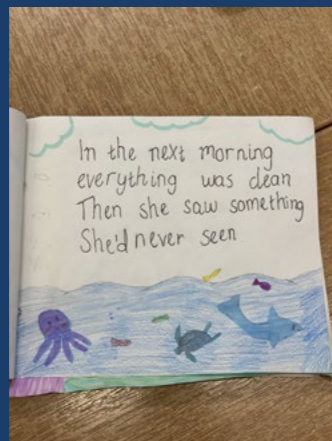 In the next morning
everything was clean
Then she saw something
She'd never seen